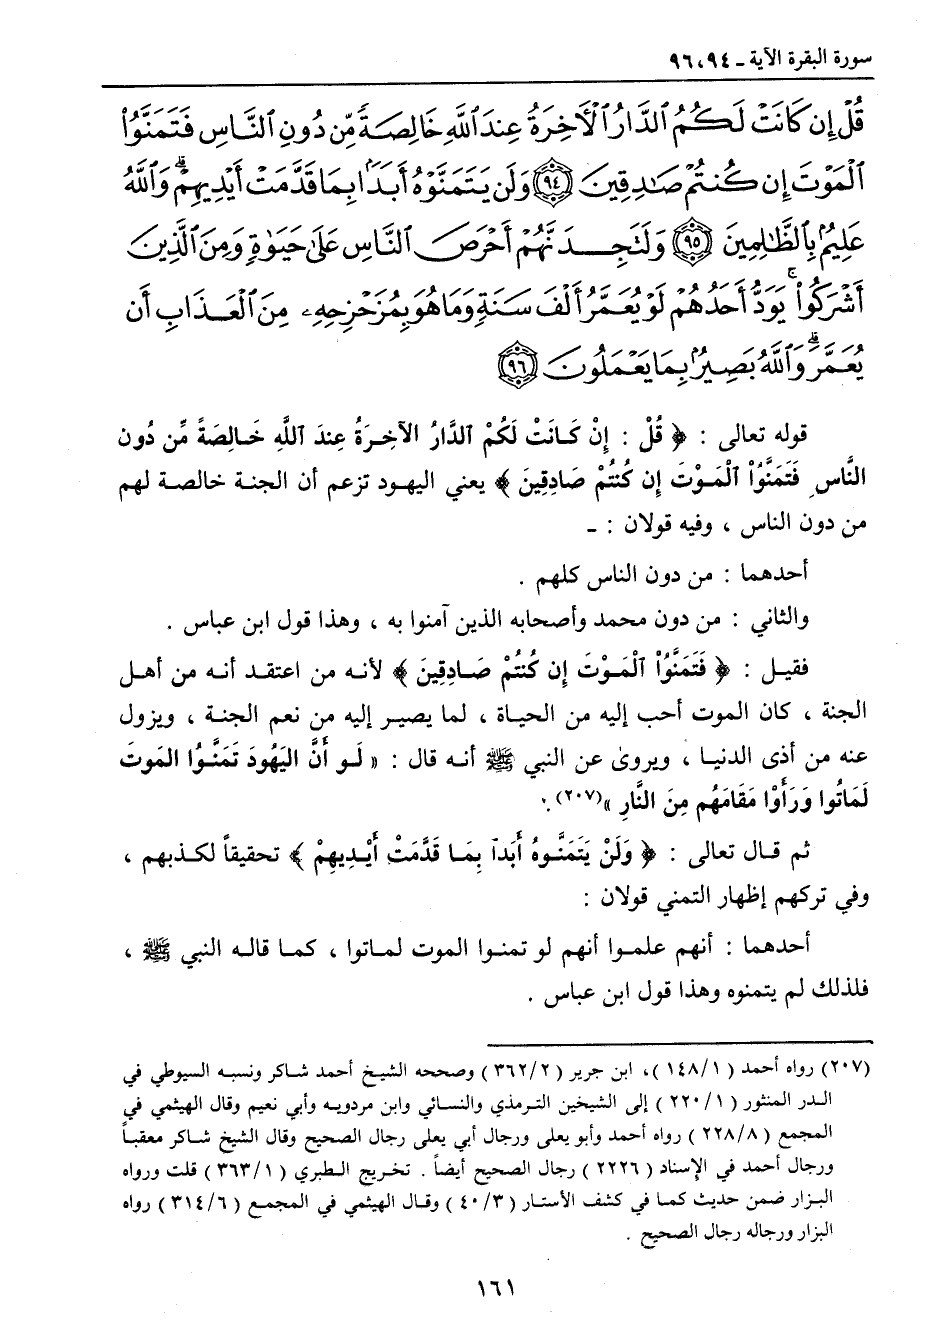 سورة البقرة الآية ـ ٩٤، ٩٦
قُلْ إِن كَانَتْ لَكُمُ ٱلدَّارُ ٱلْأَخِرَةُ عِندَ ٱللَّهِ خَالِصَةً مِّن دُونِ ٱلنَّاسِ فَتَمَنَّوُاْ
ٱلْمَوْتَ إِن كُنتُمْ صَٰدِقِينَ ﴿٩٤﴾ وَلَن يَتَمَنَّوْهُ أَبَدًۢا بِمَا قَدَّمَتْ أَيْدِيهِمْۗ وَٱللَّهُ
عَلِيمُۢ بِٱلظَّٰلِمِينَ ﴿٩٥﴾ وَلَتَجِدَنَّهُمْ أَحْرَصَ ٱلنَّاسِ عَلَىٰ حَيَوٰةٍ وَمِنَ ٱلَّذِينَ
أَشْرَكُواْۚ يَوَدُّ أَحَدُهُمْ لَوْ يُعَمَّرُ أَلْفَ سَنَةٍ وَمَا هُوَ بِمُزَحْزِحِهِۦ مِنَ ٱلْعَذَابِ أَن
يُعَمَّرَۗ وَٱللَّهُ بَصِيرُۢ بِمَا يَعْمَلُونَ ﴿٩٦﴾
قوله تعالى : ﴿ قُلْ : إِنْ كَانَتْ لَكُمْ ٱلدَّارُ الآخِرَةُ عِندَ ٱللَّهِ خَالِصَةً مِّن دُون
النَّاسِ فَتَمَنَّوُاْ ٱلْمَوْتَ إِن كُنتُمْ صَادِقِينَ ﴾ يعني اليهود تزعم أن الجنة خالصة لهم
من دون الناس ، وفيه قولان : ـ
أحدهما : من دون الناس كلهم .
والثاني : من دون محمد وأصحابه الذين آمنوا به ، وهذا قول ابن عباس .
فقيل : ﴿ فَتَمَنَّوُاْ ٱلْمَوْتَ إِن كُنتُمْ صَادِقِينَ ﴾ لأنه من اعتقد أنه من أهل
الجنة ، كان الموت أحب إليه من الحياة ، لما يصير إليه من نعم الجنة ، ويزول
عنه من أذى الدنيا ، ويروىٰ عن النبي ﷺ أنه قال : « لَو أَنَّ اليَهُودَ تَمَنَّوُا المَوتَ
لَمَاتُوا وَرَأَوْا مَقَامَهُم مِنَ النَّارِ »(٢٠٧) .
ثم قال تعالى : ﴿ وَلَنْ يَتَمَنَّوهُ أَبَداً بِمَا قَدَّمَتْ أَيْدِيهِمْ ﴾ تحقيقاً لكذبهم ،
وفي تركهم إظهار التمني قولان :
أحدهما : أنهم علموا أنهم لو تمنوا الموت لماتوا ، كما قاله النبي ﷺ ،
فلذلك لم يتمنوه وهذا قول ابن عباس .
(٢٠٧) رواه أحمد (١٤٨/١)، ابن جرير (٣٦٢/٢) وصححه الشيخ أحمد شاكر ونسبه السيوطي في
الدر المنثور (٢٢٠/١) إلى الشيخين الترمذي والنسائي وابن مردويه وأبي نعيم وقال الهيثمي في
المجمع (٢٢٨/٨) رواه أحمد وأبو يعلى ورجال أبي يعلى رجال الصحيح وقال الشيخ شاكر معقباً
ورجال أحمد في الإسناد (٢٢٢٦) رجال الصحيح أيضاً . تخريج الطبري (٣٦٣/١) قلت ورواه
البزار ضمن حديث كما في كشف الأستار (٤٠/٣) وقال الهيثمي في المجمع (٣١٤/٦) رواه
البزار ورجاله رجال الصحيح .
١٦١